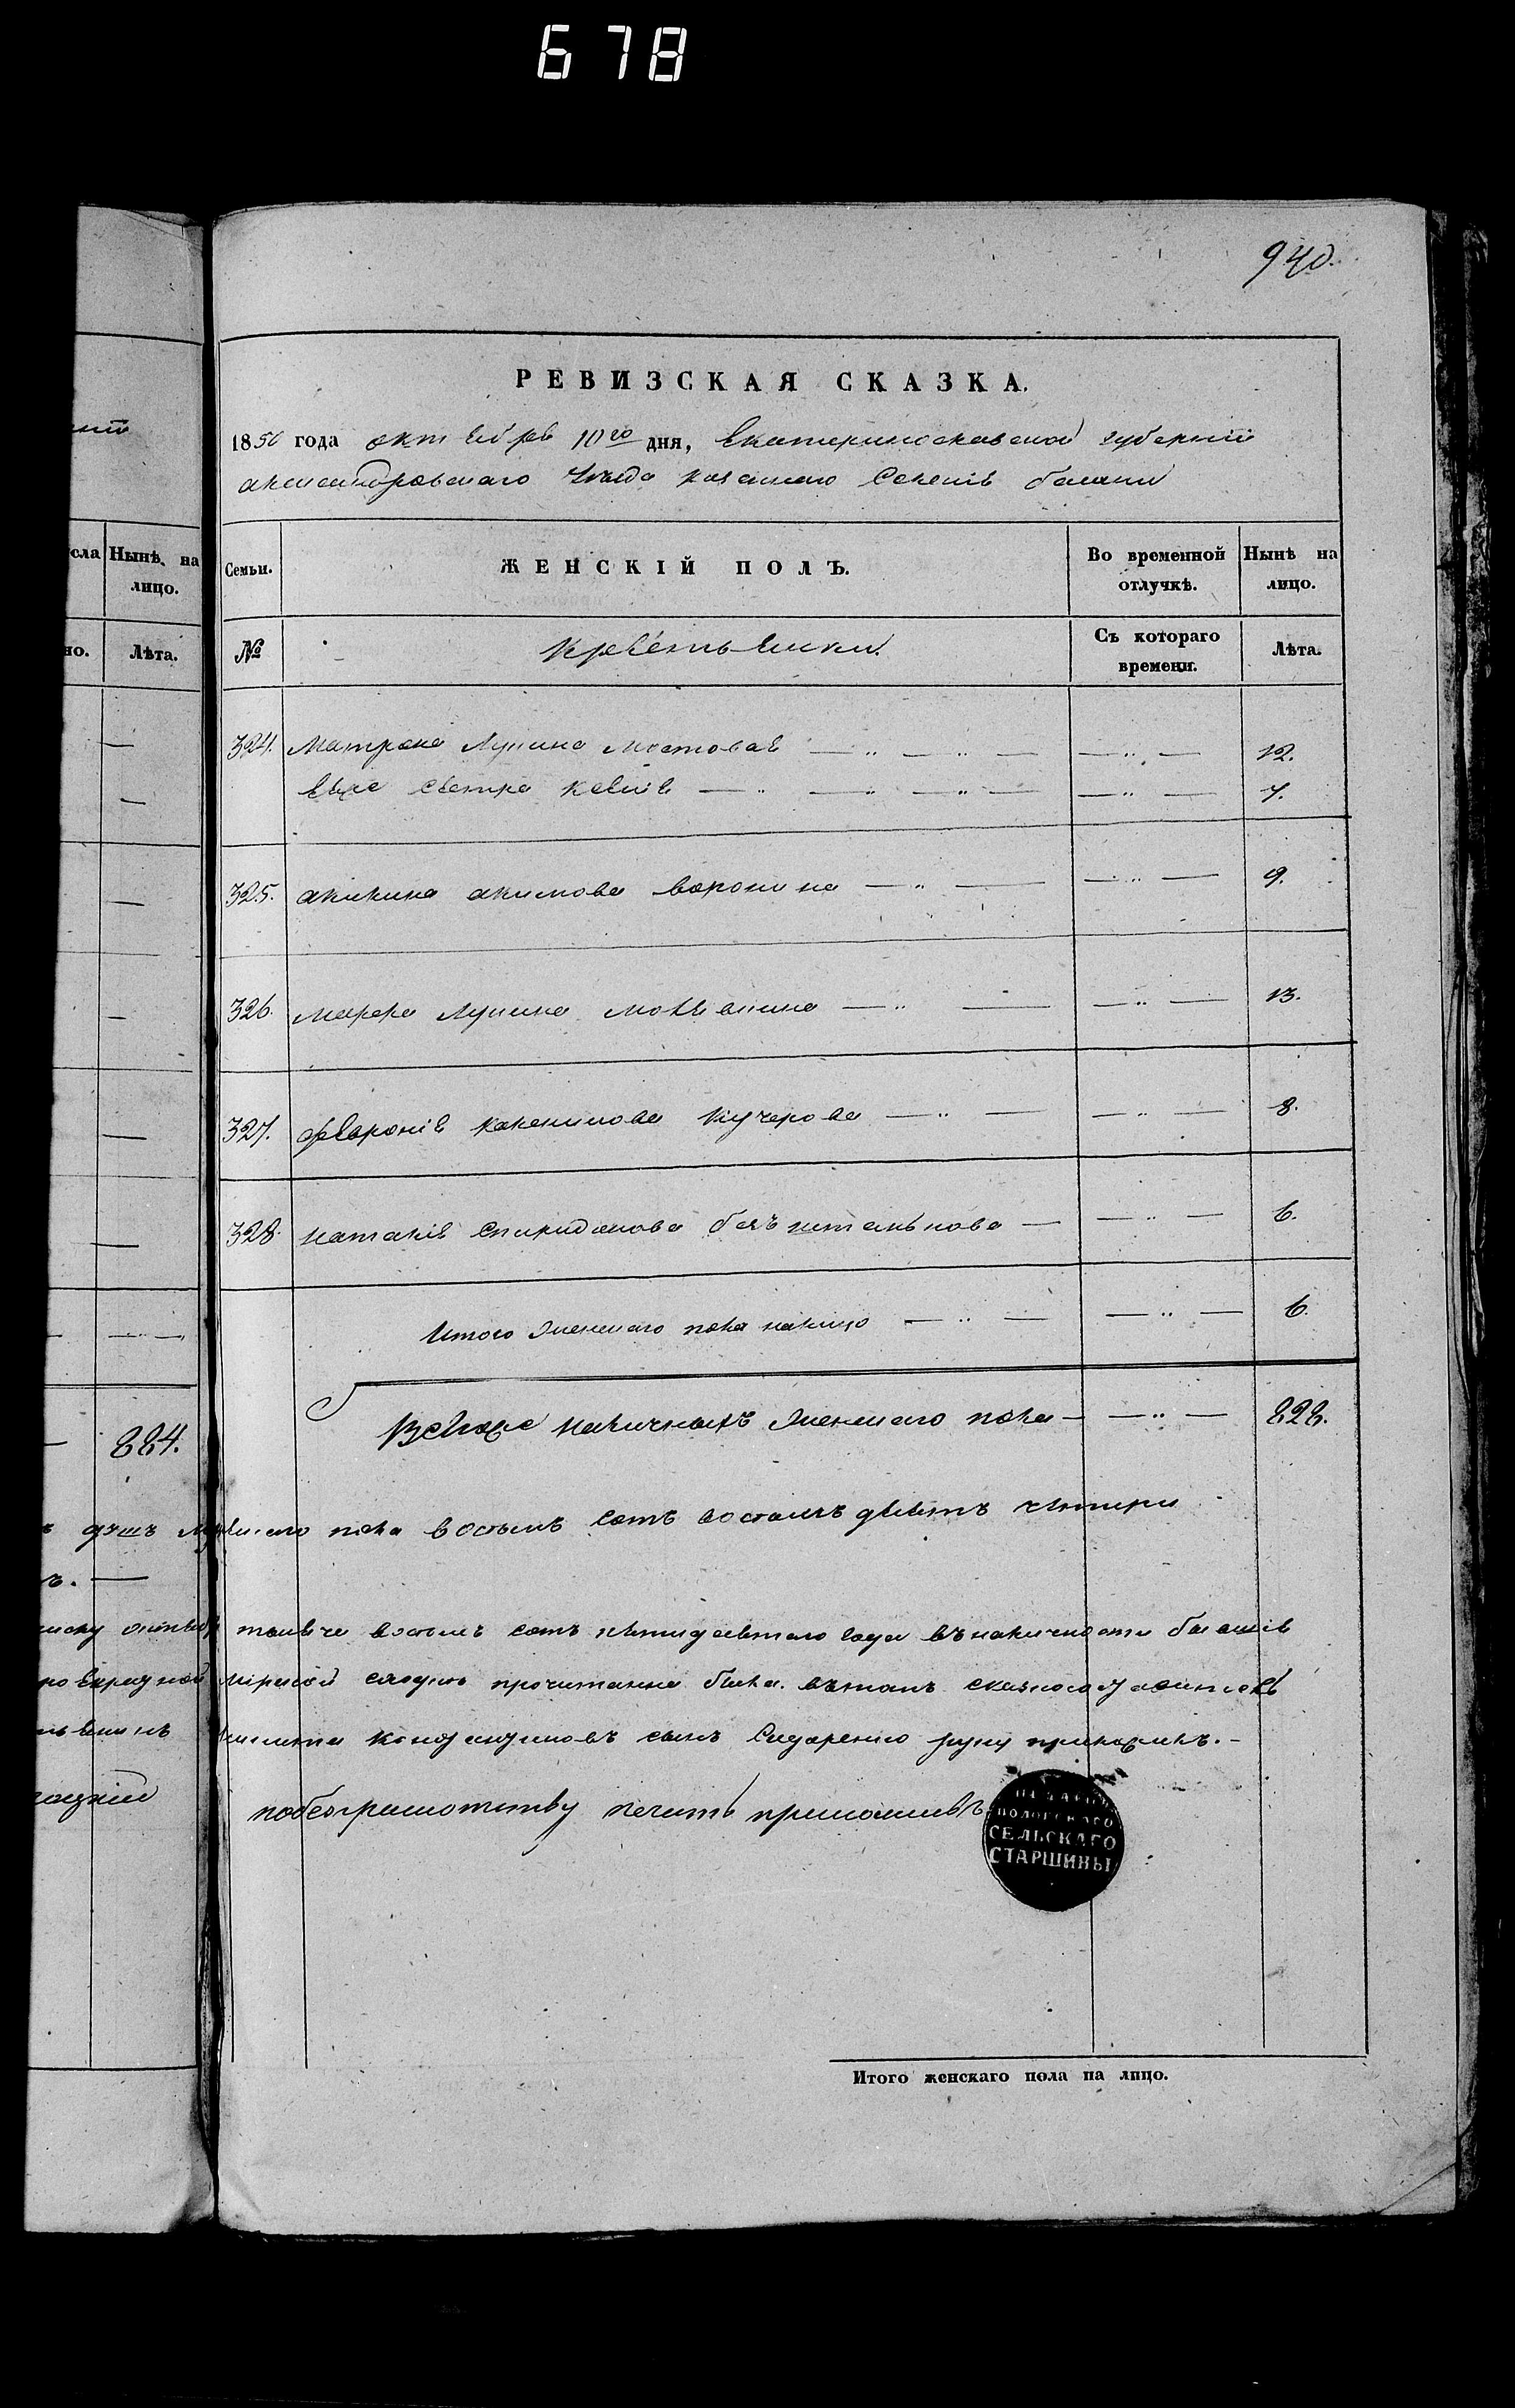 678
940.
РЕВИЗСКАЯ СКАЗКА.
1850 года октября 10го дня, Екатеринославской губернии
александровскаго уезда казеннаго Селения
сла Нынѣ на лицо.
но. Лѣта.
Семьи. ЖЕНСКІЙ ПОЛЪ. Во временной отлучкѣ. Нынѣ на лицо.
№ Крестьянски. Съ котораго времени. Лѣта.
324. Матрона Лукина Мостовая — „ — „ — — „ — 12.
ея же сестра Ксения — „ — „ — „ — — „ — 7.
325. акилина акимова воронина — „ — — „ — 9.
326. марфа Лукина — „ — — „ — 13.
327. феврония Кучерова — „ — — „ — 8.
328. наталия спиридонова — — „ — 6.
Итого женскаго пола налицо — „ — — „ — 6.
Всехже наличныхъ женскаго пола — — „ — 828.
884.
душъ мужескаго пола восемъ сотъ восемъ десятъ четыри
тысяча восемъ сотъ пятидесятаго года въ наличности
мирской сходъ прочитанна была. въ томъ
сынъ Сидоренко руку приложилъ. –
побезграмотству печать приложилъ
ПОЛОГСКАГО
СЕЛЬСКАГО
СТАРШИНЫ
Итого женскаго пола на лицо.